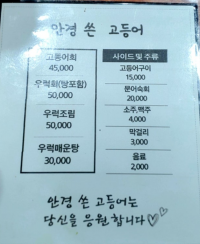 안경 쓴 고등어
고등어회
45,000
우럭회(탕포함)
50,000
우럭조림
50,000
우럭매운탕
30,000
사이드 및 주류
고등어구이
15,000
문어숙회
20,000
소주,맥주
4,000
막걸리
3,000
음료
2,000
안경 쓴 고등어는
당신을 응원합니다♡♡